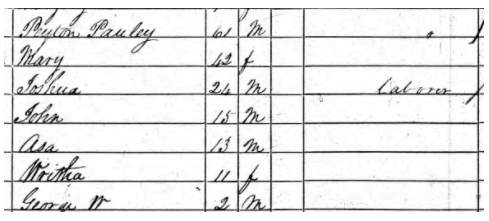 Peyton Pauley 61 M "
Mary 42 f
Joshua 24 M laborer
John 15 M
Asa 13 M
Writha 11 f
George W 2 M